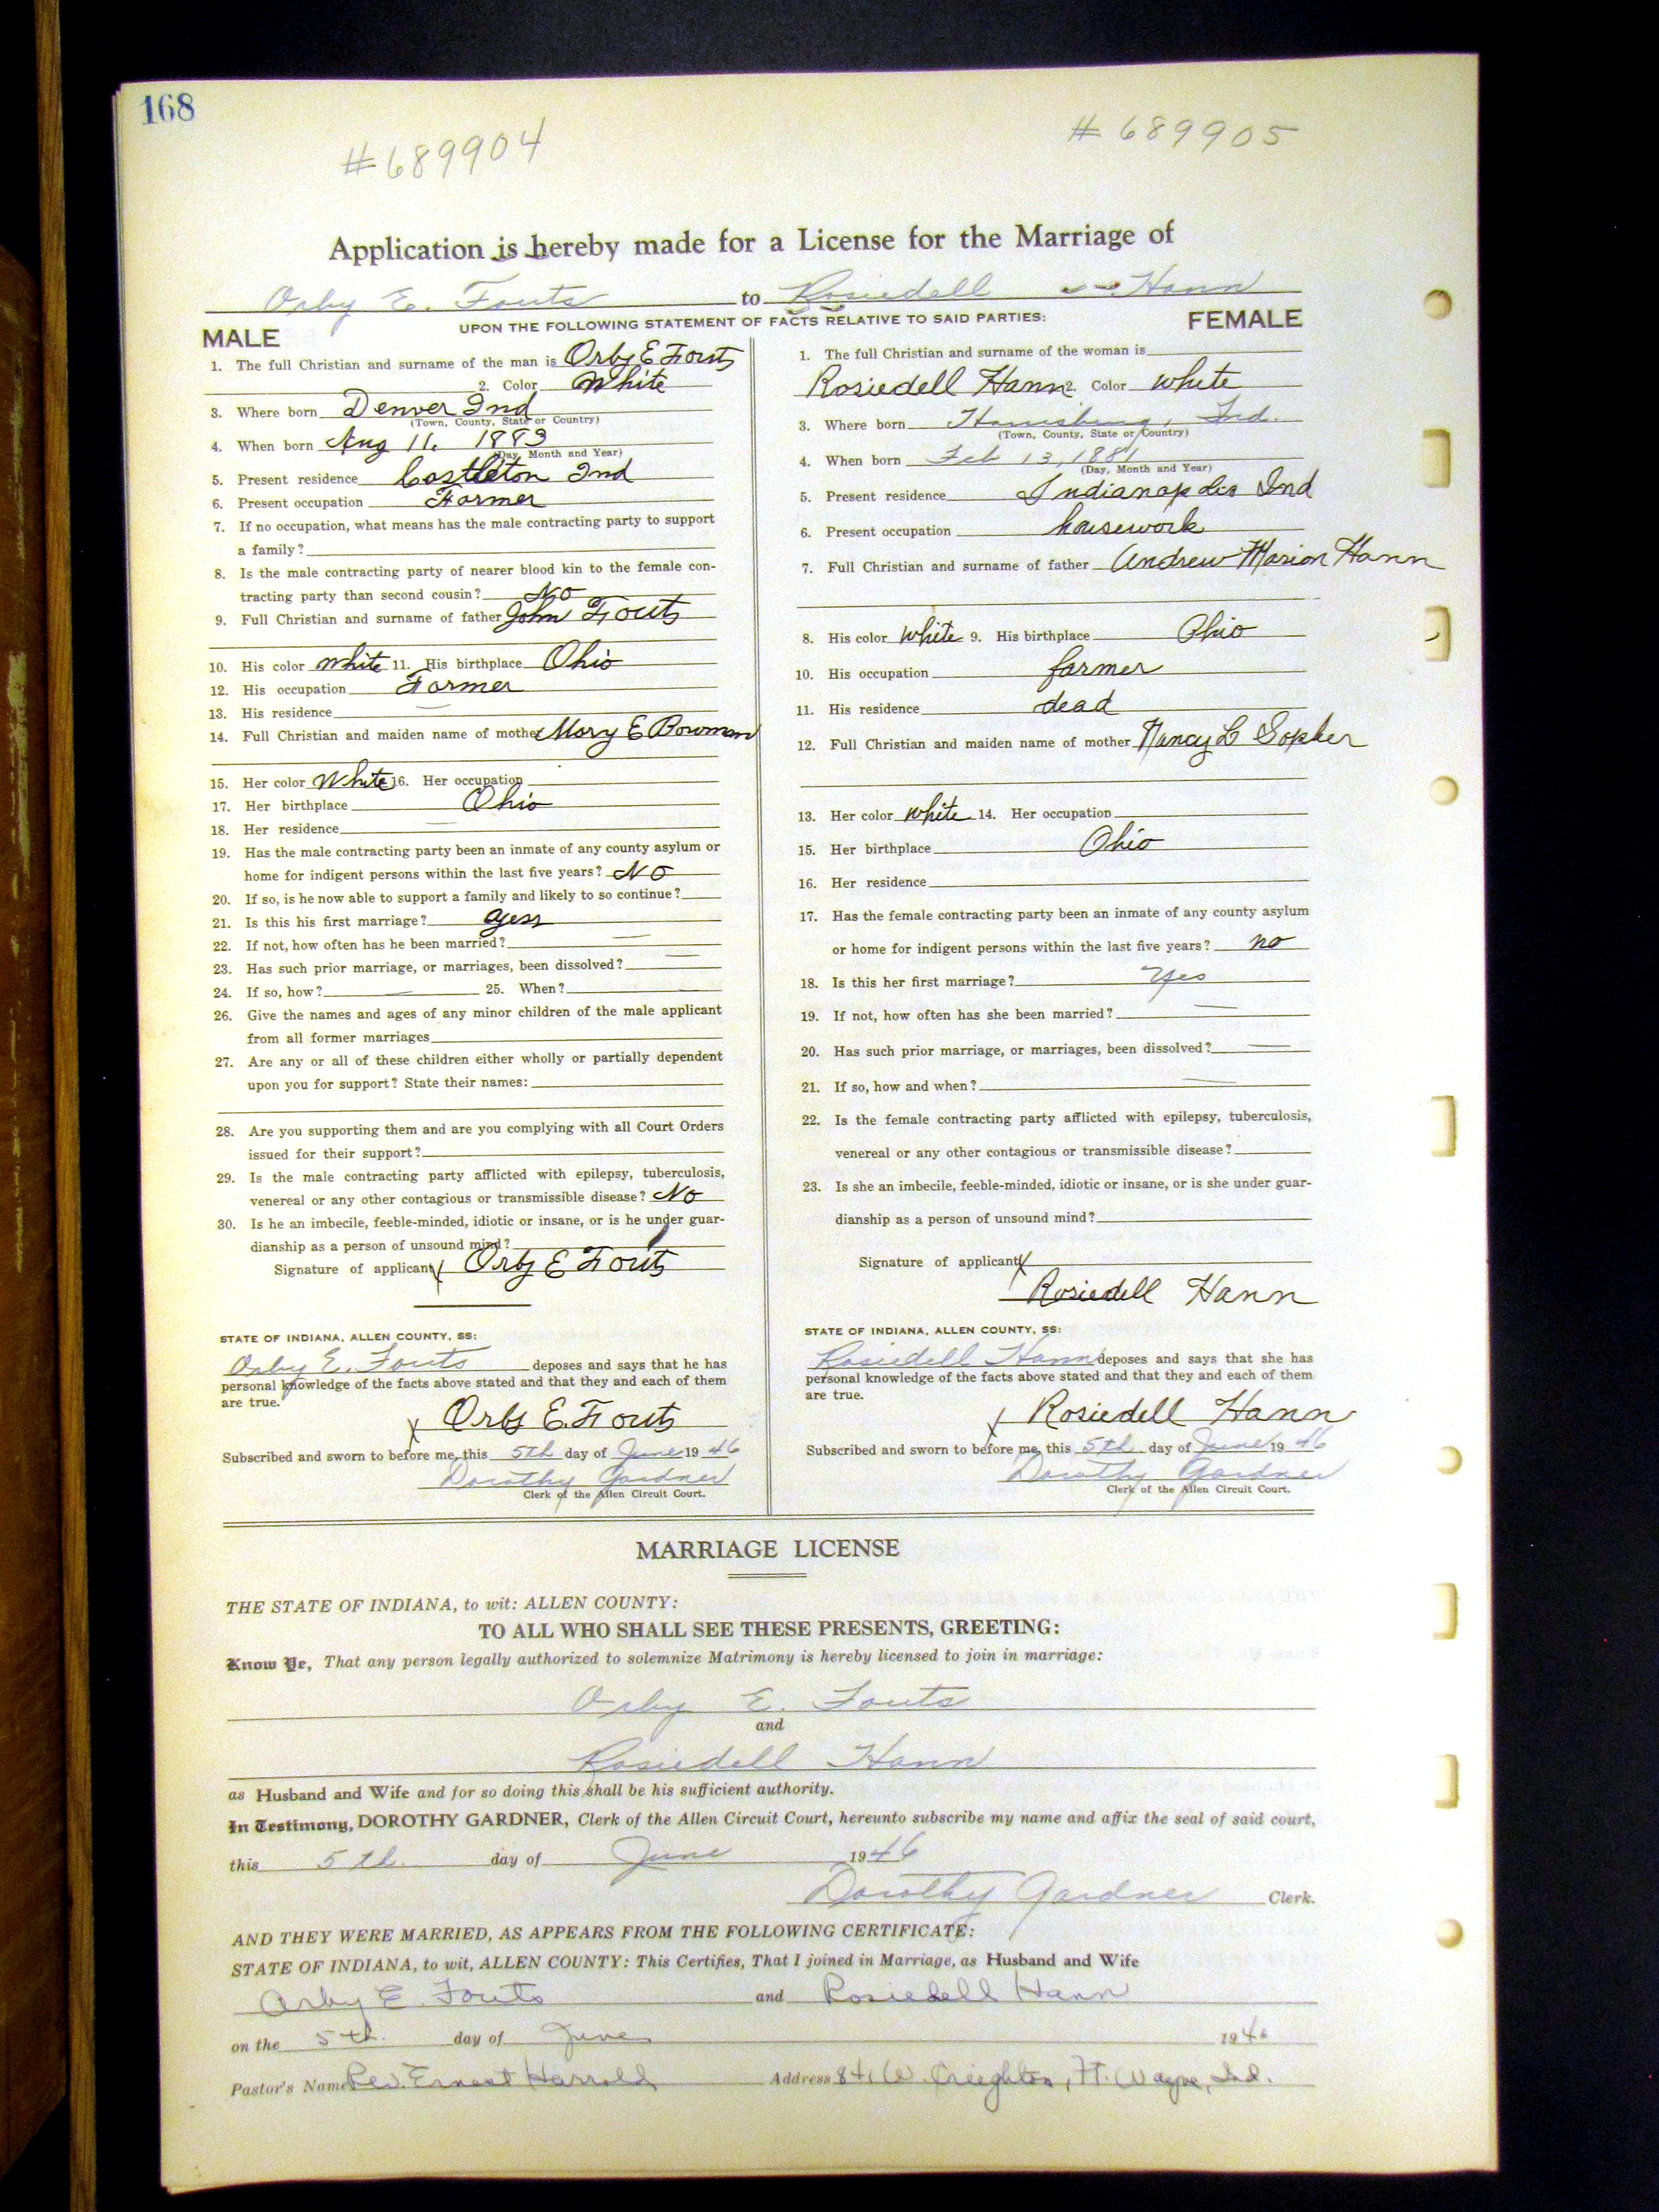 168
#689904
# 689905
Application is hereby made for a License for the Marriage of
Orby E. Fouts to Rosiedell Hann
UPON THE FOLLOWING STATEMENT OF FACTS RELATIVE TO SAID PARTIES:
MALE
1. The full Christian and surname of the man is Orby E Fouts
2. Color White
3. Where born Denver Ind
(Town, County, State or Country)
4. When born Aug 11, 1883
(Day, Month and Year)
5. Present residence Castleton Ind
6. Present occupation Farmer
7. If no occupation, what means has the male contracting party to support
a family?
8. Is the male contracting party of nearer blood kin to the female con-
tracting party than second cousin? No
9. Full Christian and surname of father John Fouts
10. His color White 11. His birthplace Ohio
12. His occupation Farmer
13. His residence
14. Full Christian and maiden name of mother Mary E Bowman
15. Her color White 16. Her occupation
17. Her birthplace Ohio
18. Her residence
19. Has the male contracting party been an inmate of any county asylum or
home for indigent persons within the last five years? No
20. If so, is he now able to support a family and likely to so continue?
21. Is this his first marriage? yess
22. If not, how often has he been married?
23. Has such prior marriage, or marriages, been dissolved?
24. If so, how? 25. When?
26. Give the names and ages of any minor children of the male applicant
from all former marriages
27. Are any or all of these children either wholly or partially dependent
upon you for support? State their names:
28. Are you supporting them and are you complying with all Court Orders
issued for their support?
29. Is the male contracting party afflicted with epilepsy, tuberculosis,
venereal or any other contagious or transmissible disease? No
30. Is he an imbecile, feeble-minded, idiotic or insane, or is he under guar-
dianship as a person of unsound mind?
Signature of applicant x Orby E Fouts
STATE OF INDIANA, ALLEN COUNTY, SS:
Orby E. Fouts deposes and says that he has
personal knowledge of the facts above stated and that they and each of them
are true.
x Orby E. Fouts
Subscribed and sworn to before me, this 5th day of June 1946
Dorothy Gardner
Clerk of the Allen Circuit Court.
FEMALE
1. The full Christian and surname of the woman is
Rosiedell Hann 2. Color white
3. Where born Ind.
(Town, County, State or Country)
4. When born Feb 13, 1881
(Day, Month and Year)
5. Present residence Indianapolis Ind
6. Present occupation housework
7. Full Christian and surname of father Andrew Marion Hann
8. His color white 9. His birthplace Ohio
10. His occupation farmer
11. His residence dead
12. Full Christian and maiden name of mother Nancy L Sopher
13. Her color white 14. Her occupation
15. Her birthplace Ohio
16. Her residence
17. Has the female contracting party been an inmate of any county asylum
or home for indigent persons within the last five years? no
18. Is this her first marriage? Yes
19. If not, how often has she been married?
20. Has such prior marriage, or marriages, been dissolved?
21. If so, how and when?
22. Is the female contracting party afflicted with epilepsy, tuberculosis,
venereal or any other contagious or transmissible disease?
23. Is she an imbecile, feeble-minded, idiotic or insane, or is she under guar-
dianship as a person of unsound mind?
Signature of applicant x
Rosiedell Hann
STATE OF INDIANA, ALLEN COUNTY, SS:
Rosiedell Hann deposes and says that she has
personal knowledge of the facts above stated and that they and each of them
are true.
x Rosiedell Hann
Subscribed and sworn to before me, this 5th day of June 1946
Dorothy Gardner
Clerk of the Allen Circuit Court.
MARRIAGE LICENSE
THE STATE OF INDIANA, to wit: ALLEN COUNTY:
TO ALL WHO SHALL SEE THESE PRESENTS, GREETING:
Know Ye, That any person legally authorized to solemnize Matrimony is hereby licensed to join in marriage:
Orby E. Fouts
and
Rosiedell Hann
as Husband and Wife and for so doing this shall be his sufficient authority.
In Testimony, DOROTHY GARDNER, Clerk of the Allen Circuit Court, hereunto subscribe my name and affix the seal of said court,
this 5th. day of June 1946
Dorothy Gardner Clerk.
AND THEY WERE MARRIED, AS APPEARS FROM THE FOLLOWING CERTIFICATE:
STATE OF INDIANA, to wit, ALLEN COUNTY: This Certifies, That I joined in Marriage, as Husband and Wife
Orby E. Fouts and Rosiedell Hann
on the 5th. day of June 1946
Pastor's Name Rev. Ernest Harrold Address W. Creighton, Ft. Wayne, Ind.